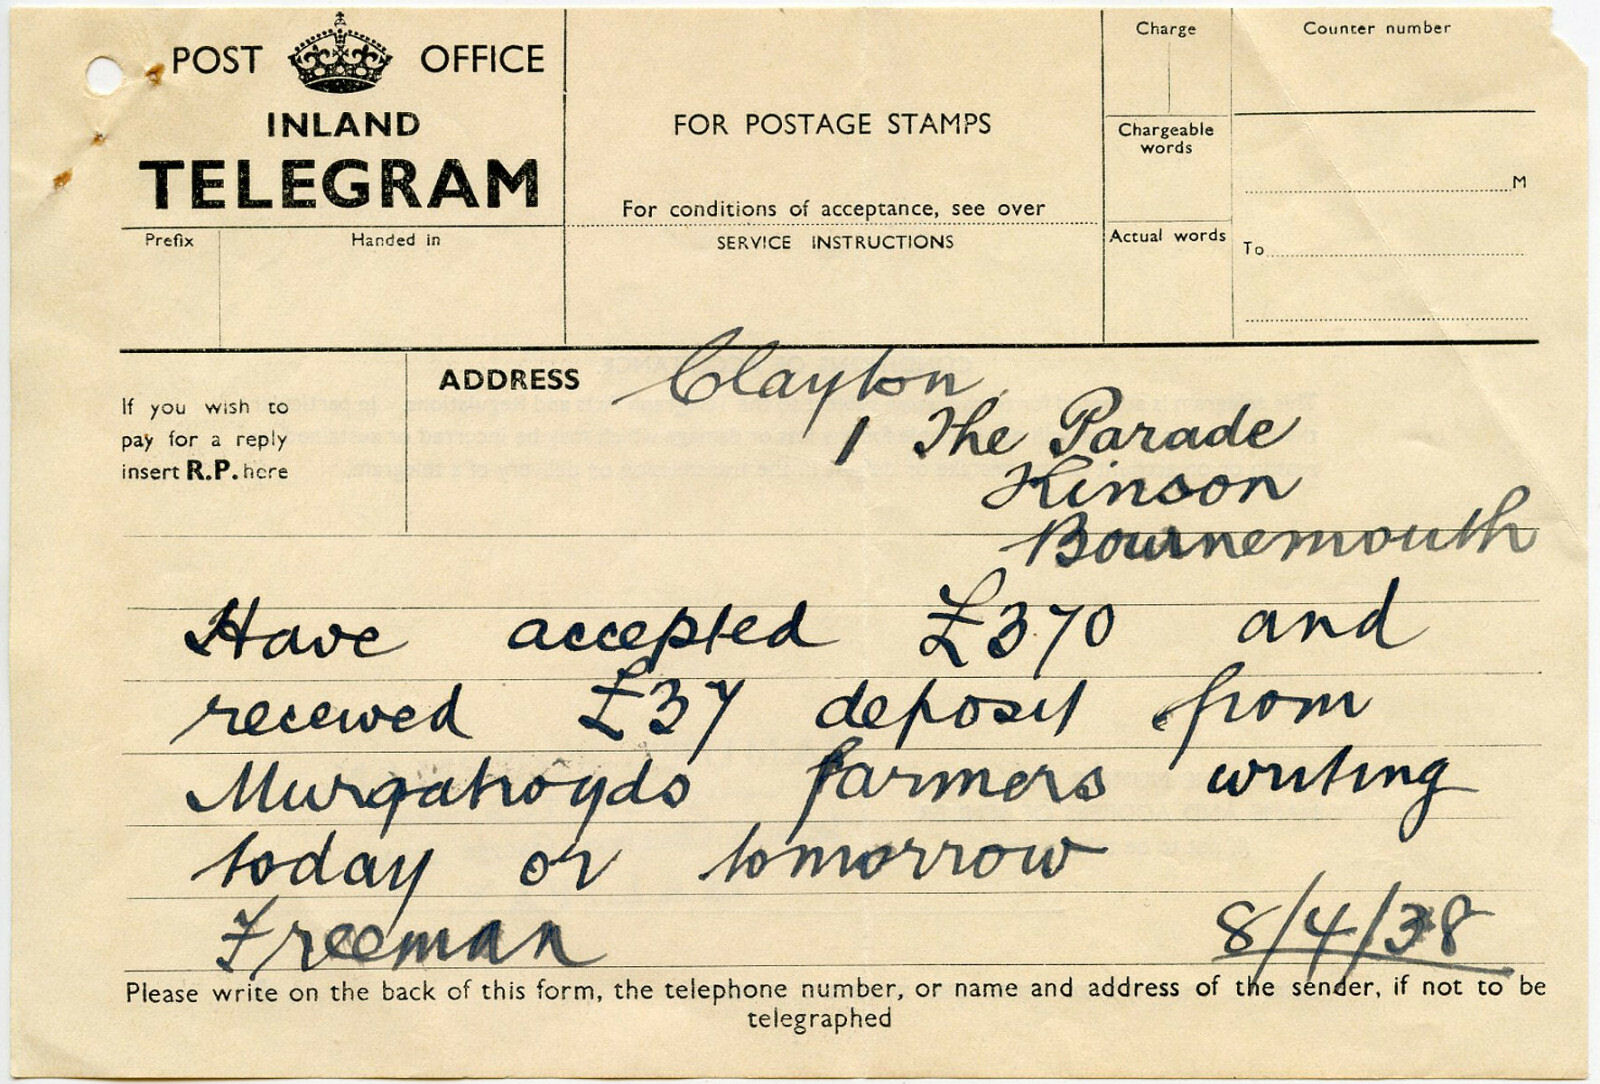 POST OFFICE
INLAND
TELEGRAM
Prefix
Handed in
FOR POSTAGE STAMPS
For conditions of acceptance, see over
SERVICE INSTRUCTIONS
Charge
Chargeable
words
Actual words
Counter number
M
To
If you wish to
pay for a reply
insert R.P. here
ADDRESS
Clayton,
1 The Parade
Kinson
Bournemouth
Have accepted £370 and
received £37 deposit from
Murgatroyds farmers writing
today or tomorrow
Freeman 8/4/38
Please write on the back of this form, the telephone number, or name and address of the sender, if not to be
telegraphed